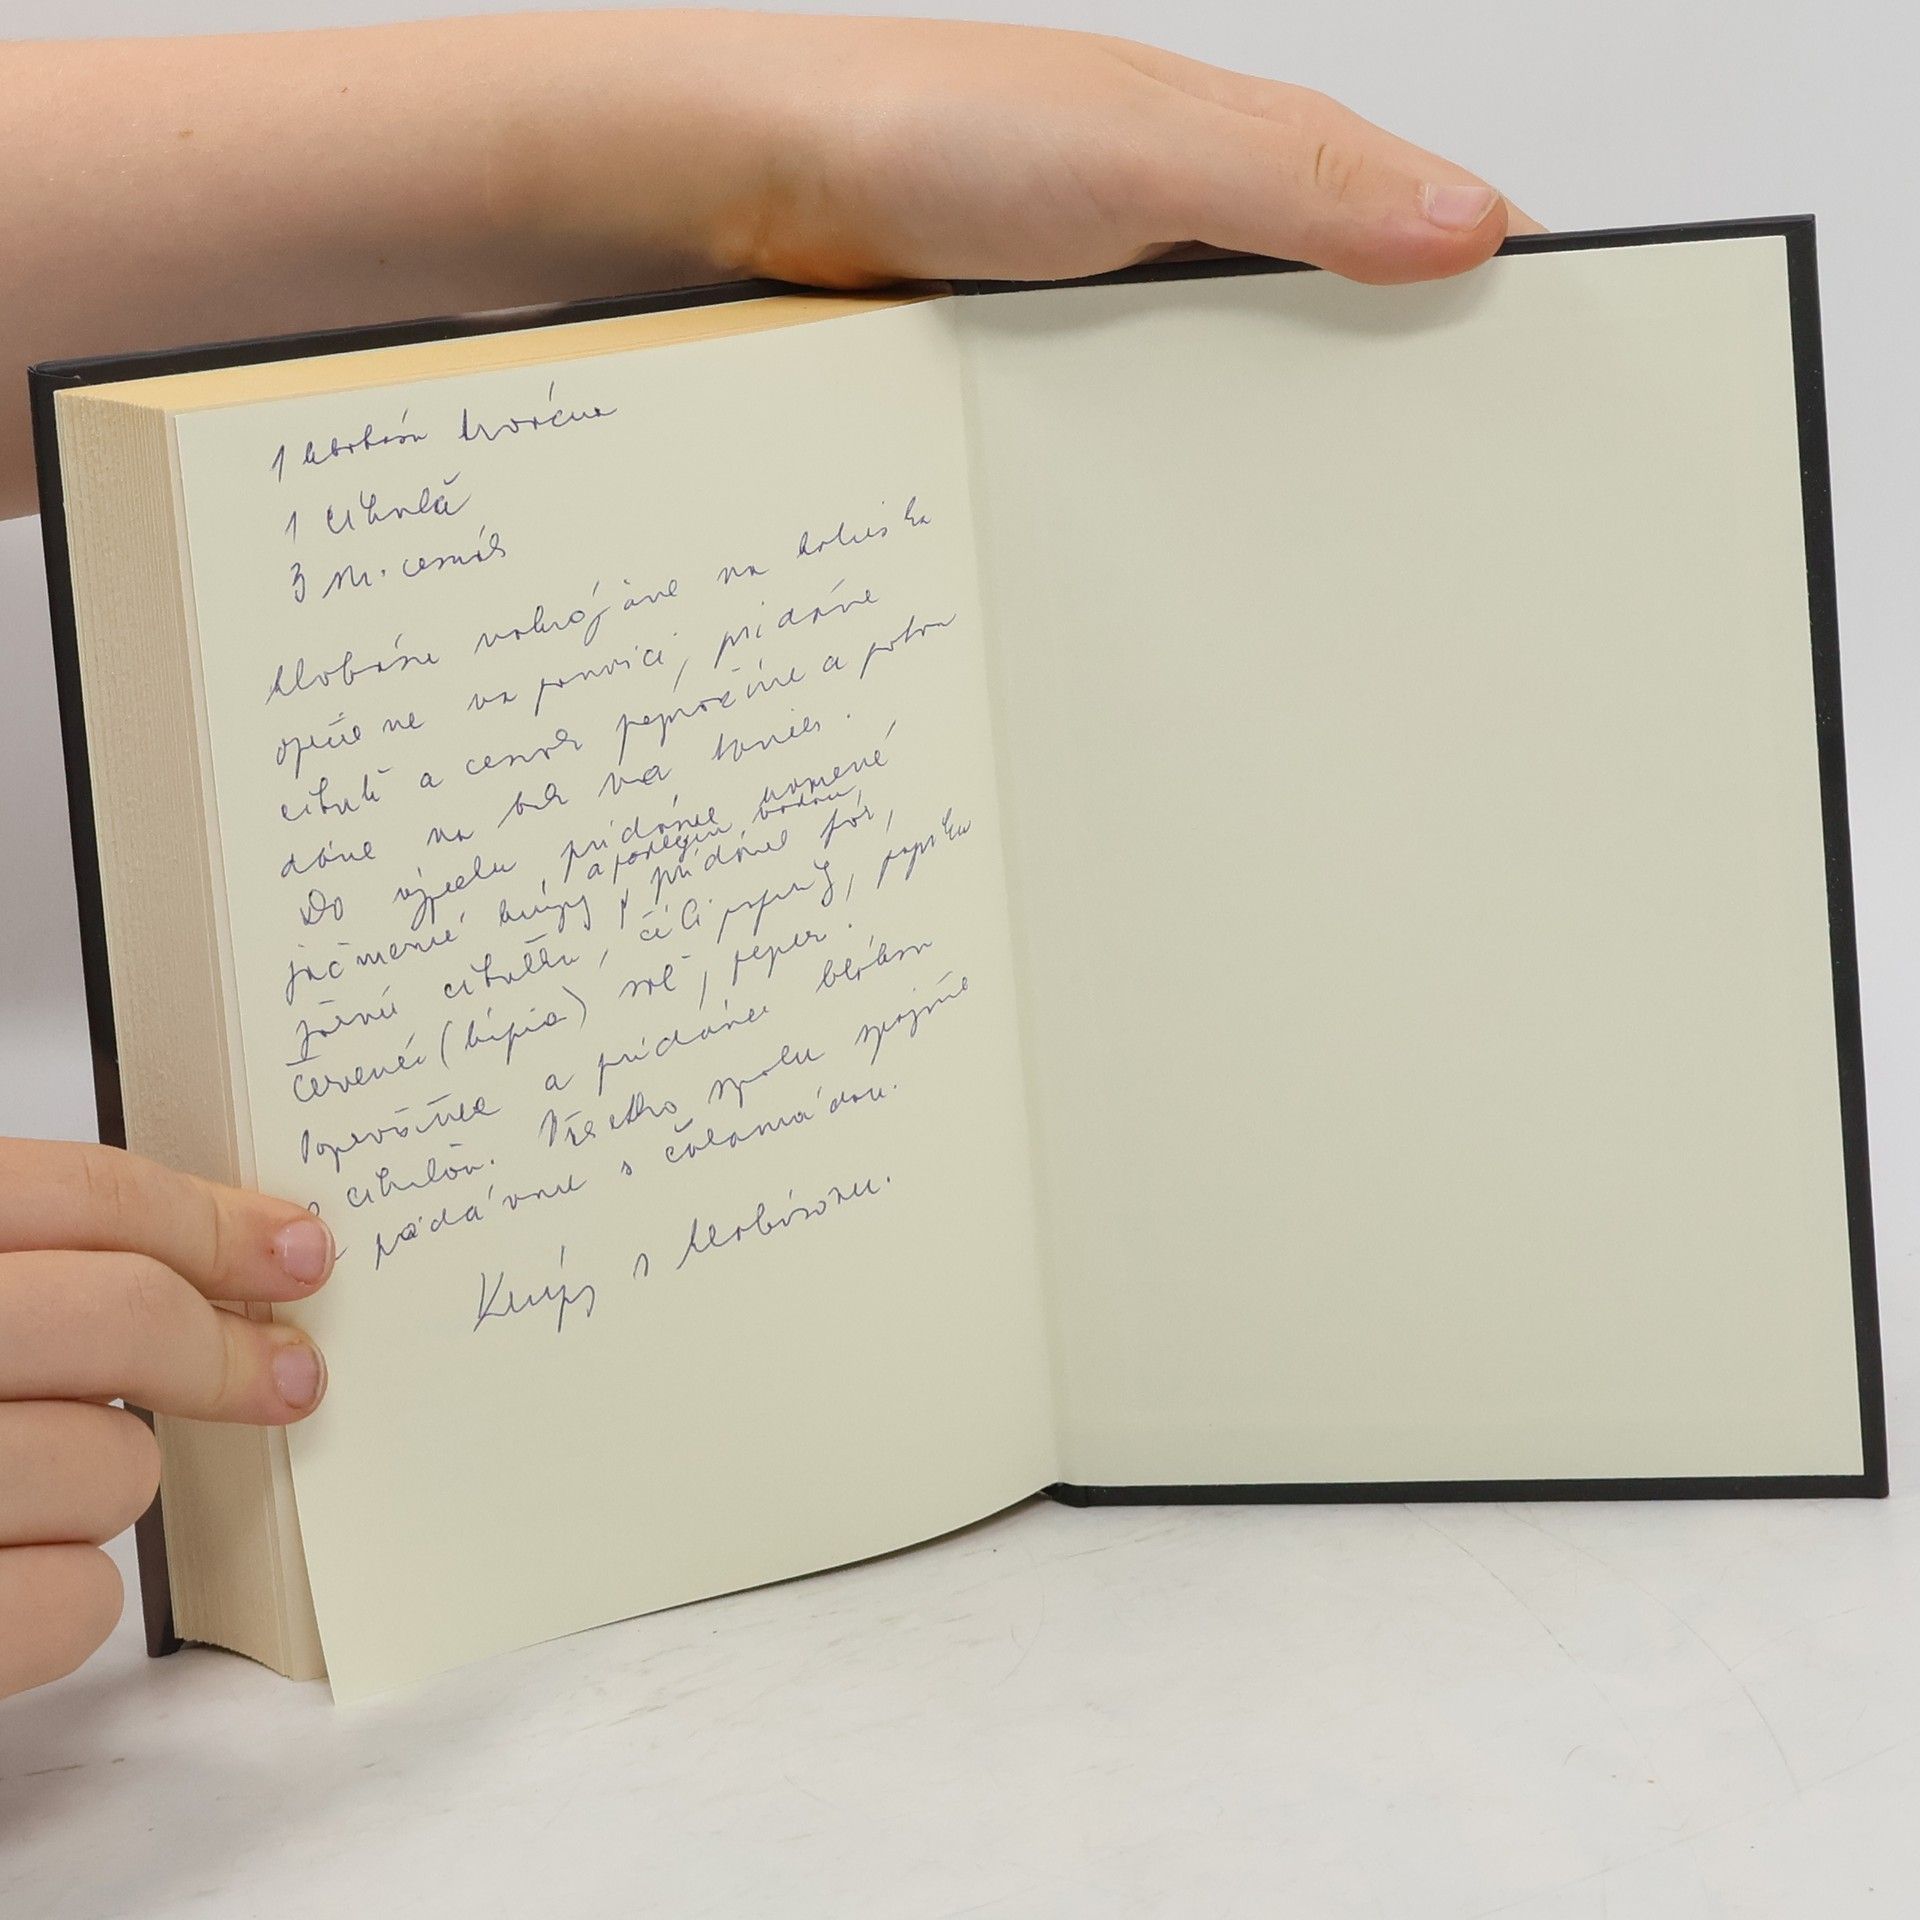 1 klobása tvorcne
1 cibuľa
3 str. cesnak
Klobásu nakrájame na kolieska
opečieme na panvici, pridáme
cibuľu a cesnak popražíme a potom
dáme na bok na tanier.
Do výpeku pridáme varené
jačmenné krúpy a podlejeme vodou, pridáme pór,
jarnú cibuľku, čili papričky, papriku
červenú (kápia) soľ, peper.
Popražíme a pridáme klobásu
s cibuľou. Všetko spolu spojíme
a podávame s čalamádou.
Krúpy s klobásou.